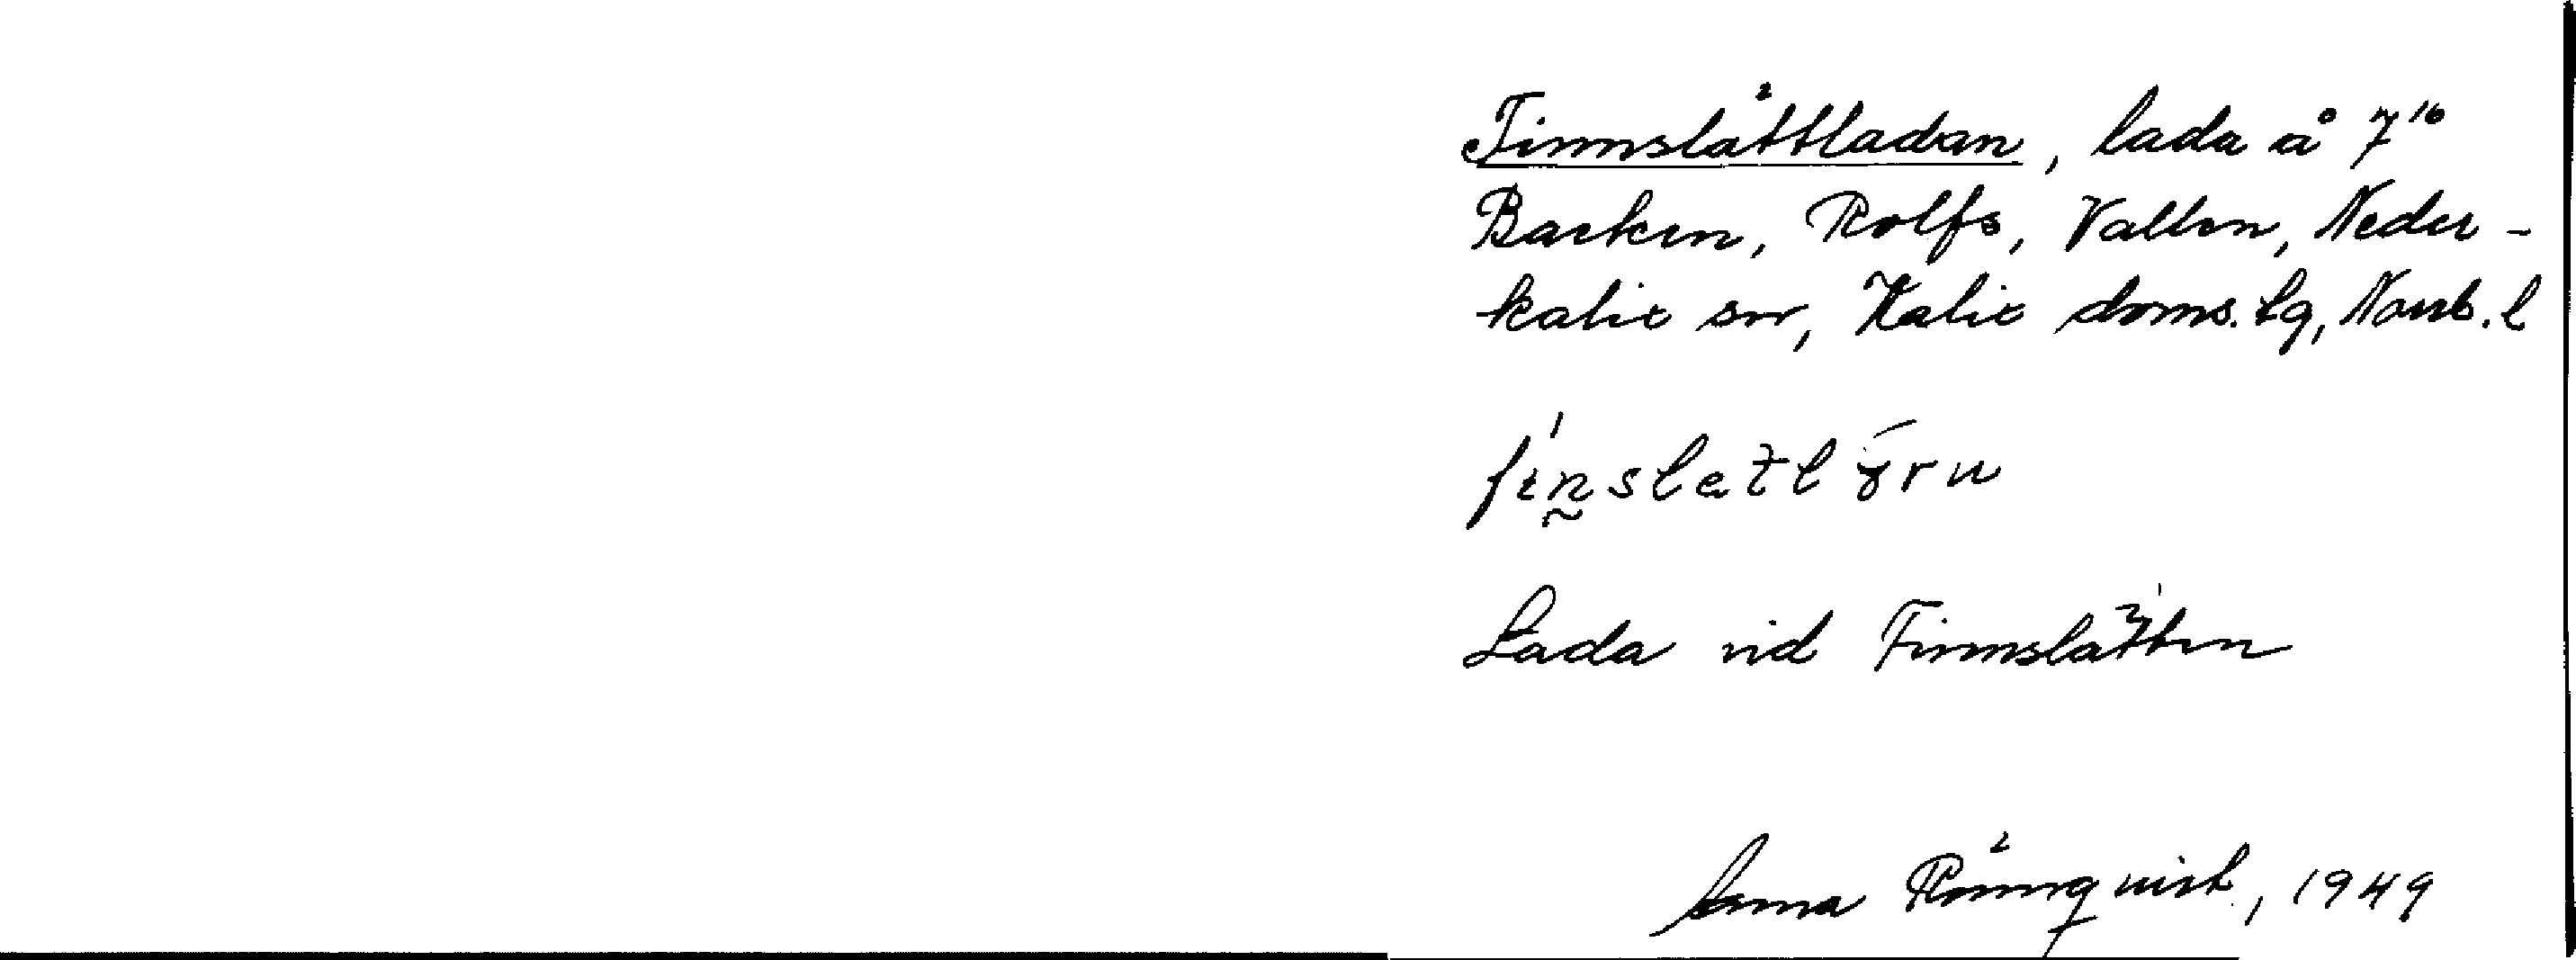 Finnslåttladan, lada å 7¹⁰
Backen, Rolfs, Vallen, Neder-
kalix sn, Kalix doms. lg, Norrb. l
Lada vid Finnslåtten
Anna Rönnquist, 1949